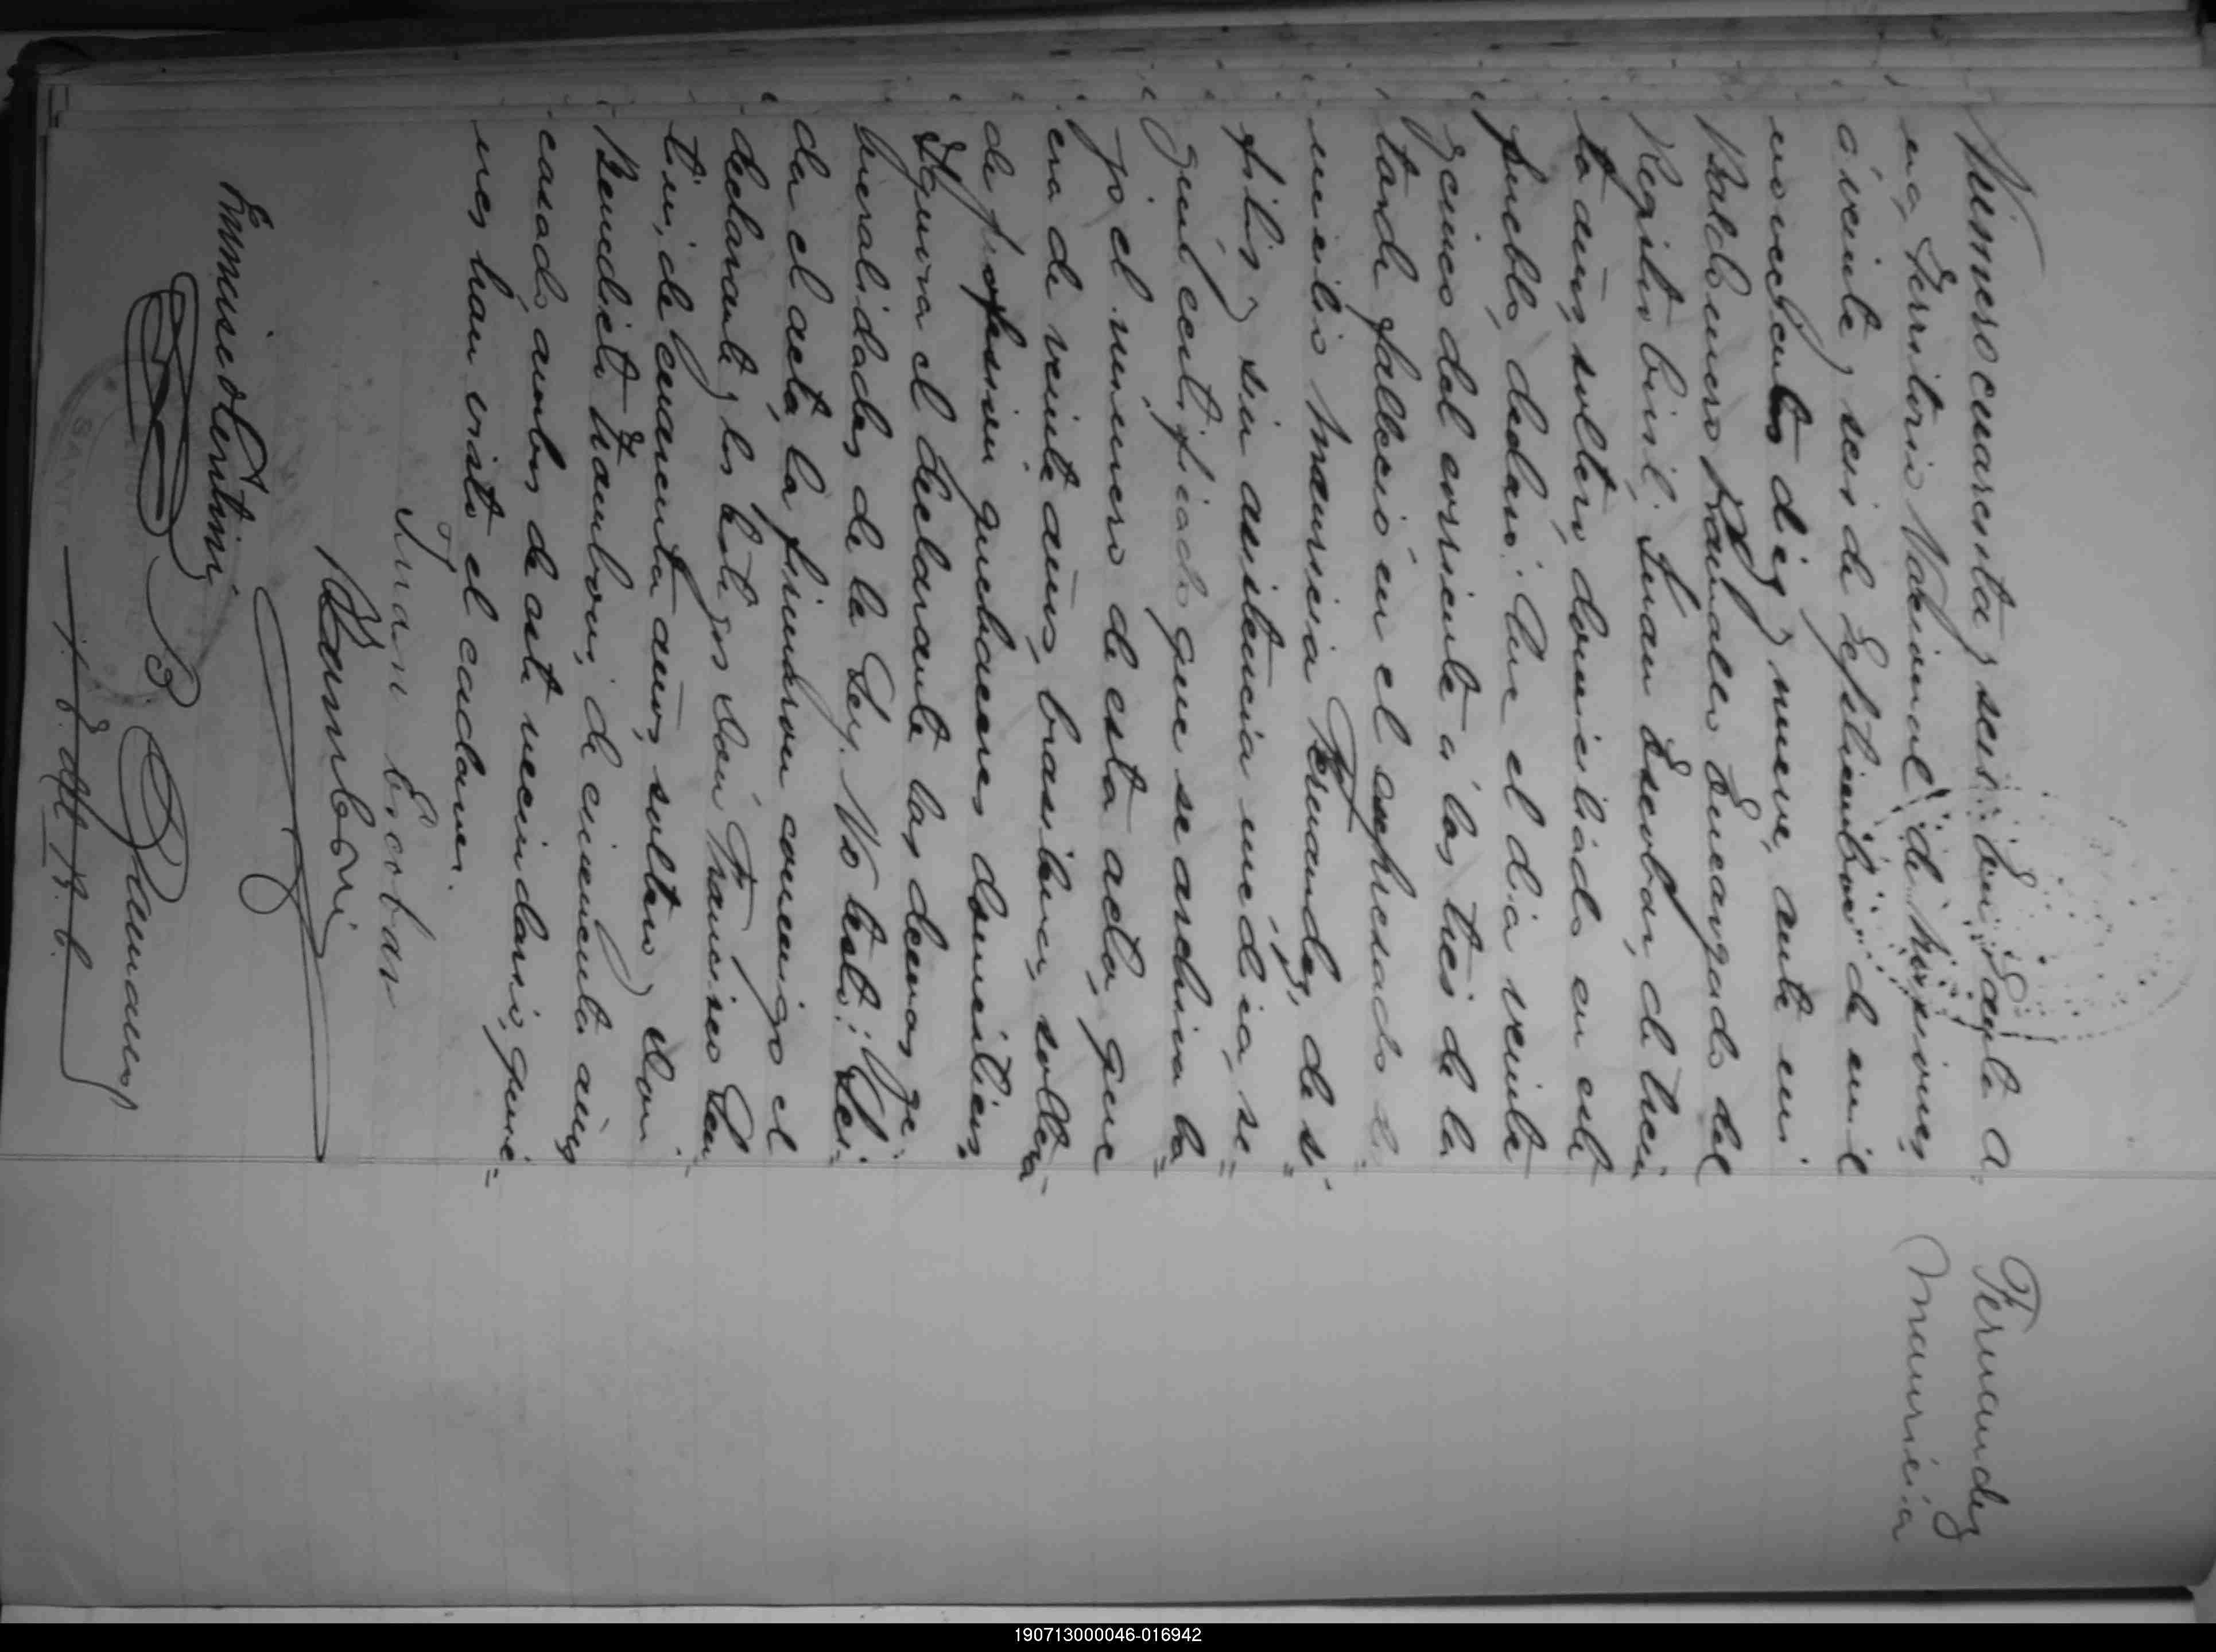 Fernandez
Mauricia
Numero cuarenta y seis. En Santa A
na, Territorio Nacional de Misiones,
a veinte y seis de Septiembre de mil
novecientos diez y nueve, ante mi
Baldomero Encargado del
Registro Civil, Juan Escobar, de trein
ta años, soltero, domiciliado en este
pueblo, declaró: Que el dia veinte
y cinco del corriente a las tres de la
tarde falleció en el expresado
Mauricia Fernandez, de si
filis y sin asistencia medica, se
gun certificado que se archiva ba
jo el número de esta acta, que
era de veinte años, brasilera, soltera
de profesion quehaceres domesticos,
Ygnora el declarante las demas ge
neralidades de la Ley. No testó. Lei
da el acta, la firmaron conmigo el
declarante y los testigos don Francisco
tini, de cuarenta años, soltero, y don
Benedicto Bamboni, de cincuenta años
casado, ambos de este vecindario, quie=
nes han visto el cadaver.
Juan Escobar
Bamboni
J. E. del R. C.
190713000046-016942